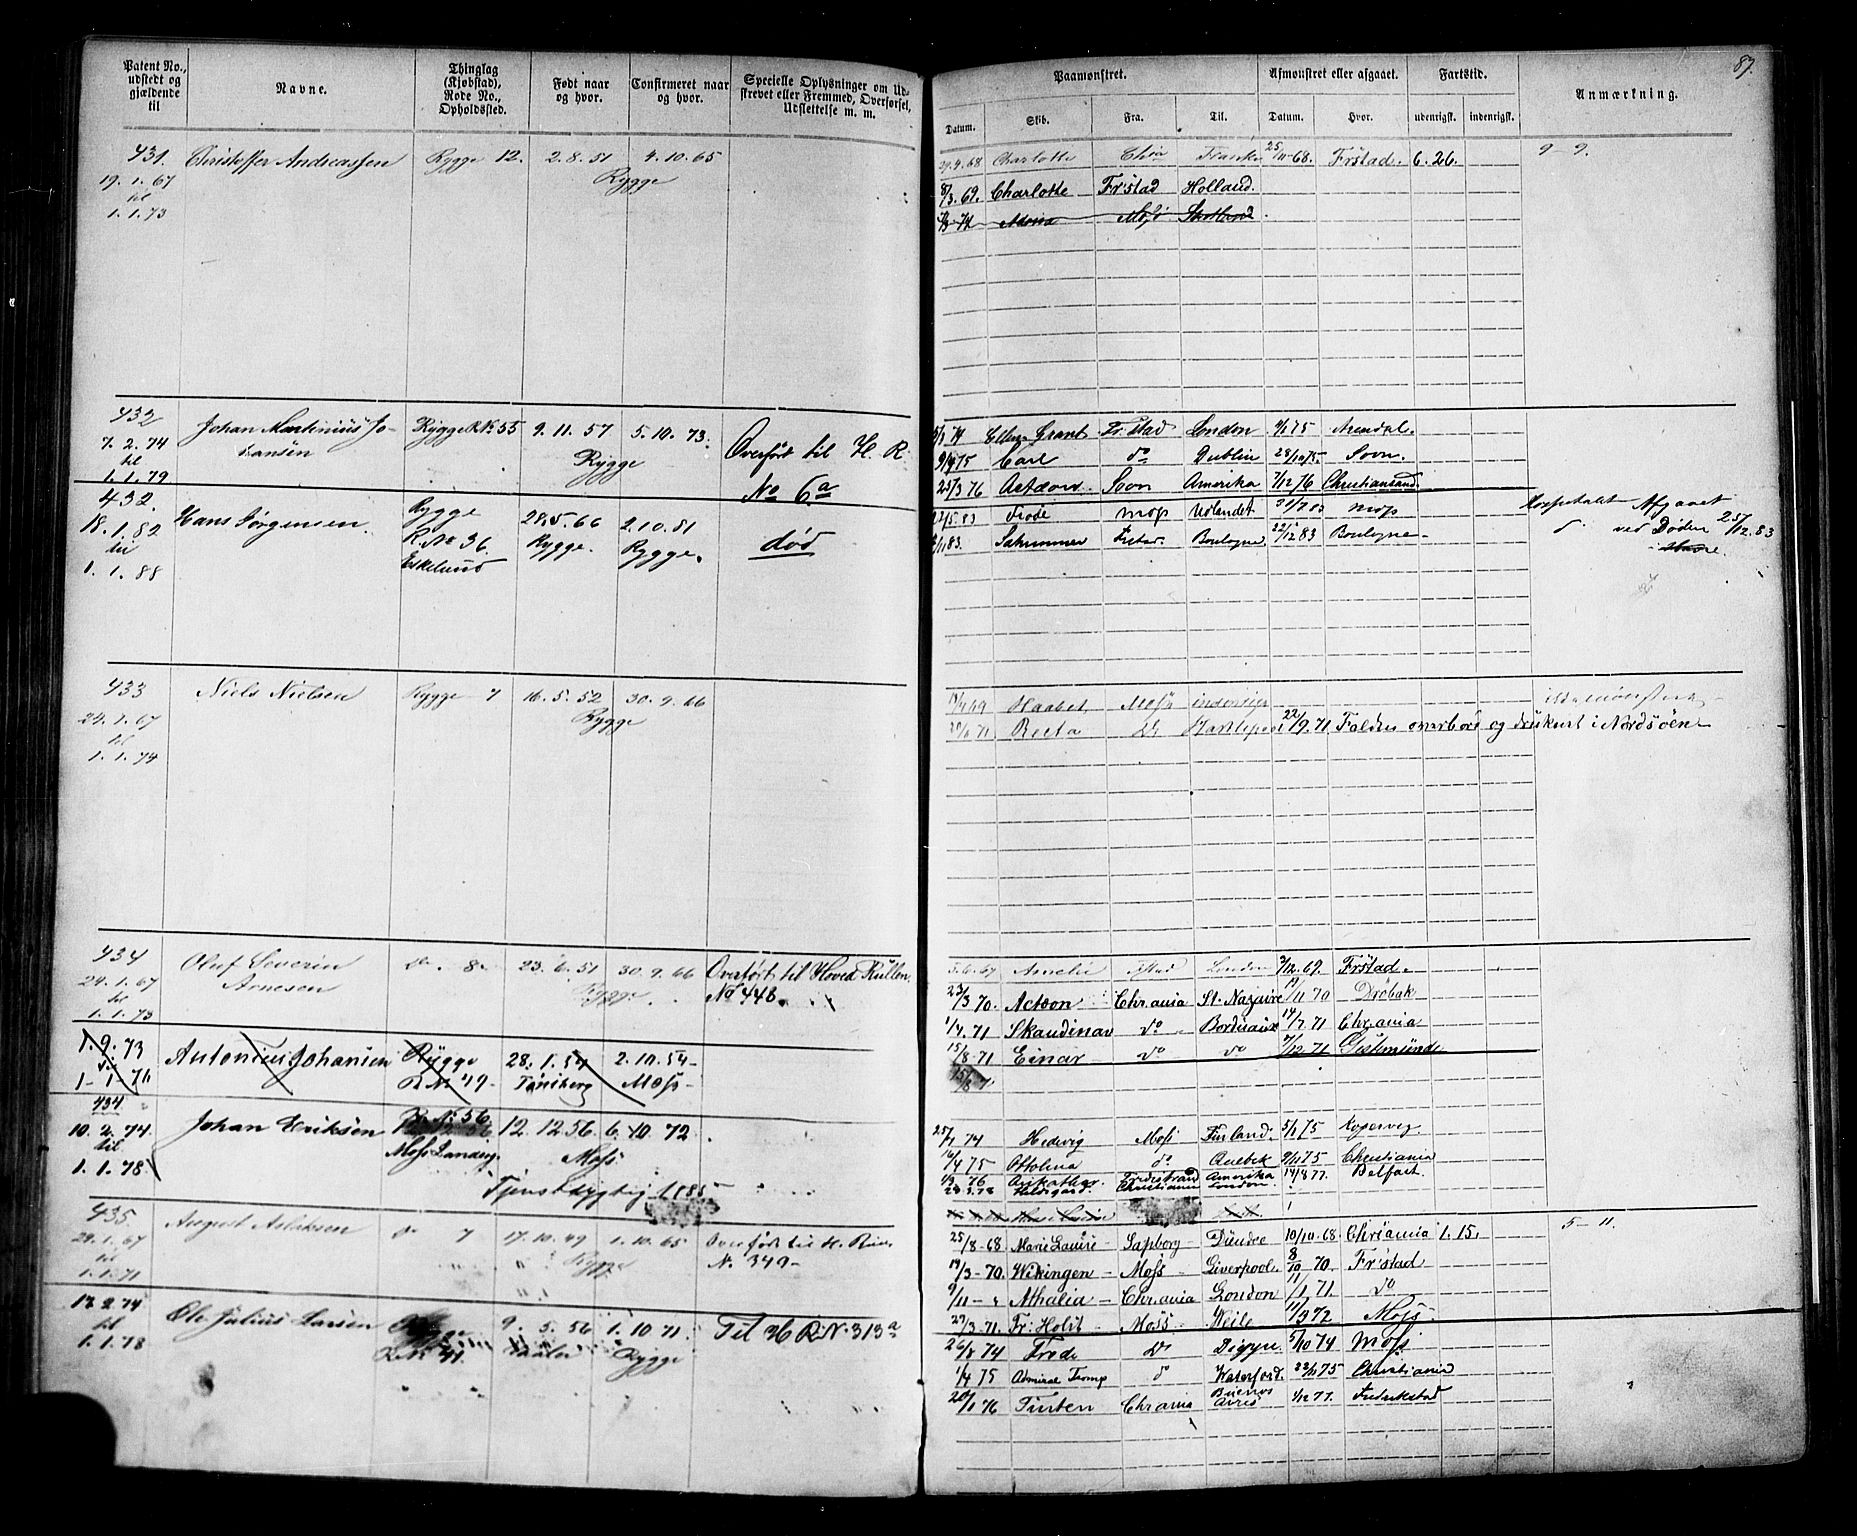 87.
Patent No., udstedt og gjældende til
Navne.
Thinglag (Kjøbstad), Rode No., Opholdssted.
Født naar og hvor.
Confirmeret naar og hvor.
Specielle Oplysninger om Udskrevet eller Fremmed, Overførsel, Udslettelse m. m.
Paamønstret.
Afmønstret eller afgaaet.
Fartstid.
Anmærkning.
Datum.
Skib.
Fra.
Til.
Datum.
Hvor.
udenrigst.
indenrigst.
431.
Christoffer Andreassen
Rygge 12.
2.8.51
4.10.65
Rygge
19.1.67
til
1.1.73
29.4.68 Charlotte
25/11-68. Frstad. 6.26.
9-9.
8/3.69. Charlotte Frstad Holland.
Maria Moss
432
Johan Martinius Johansen
Rygge R.No. 55
9.11.57
Rygge
5.10.73.
Overført til H.R.
No 6a
7.2.74
til
1.1.79
74 Ellen Grant Frstad London 75 Arendal.
75 Carl do Dublin 28/10 75. Sovn.
25/3 76 Actæon Son Amerika 7/12 76 Christiansand.
432.
Hans Jørgensen
Rygge
R.No 36.
Eskelund
28.5.66
Rygge.
2.10.81
Rygge.
død
18.1.82
til
1.1.88
22/5.83 Frode Moss Udlandet Moss
83. Frstad. Boulogne. 22/12 83 Boulogne
Hospitalet Afgaaet
ved Døden 25/12.83
433
Niels Nielsen
Rygge 7
16.5.52
Rygge
30.9.66
24.1.67
til
1.1.74
69 Haabet Moss
71 Recta Do Hartlepool 22/9.71 Falden overbord og druknet i Nordsøen
434
Oluf Severin Arnesen
Do. 8
23.6.51
Rygge
30.9.66
Overført til Hoved Rullen
No 448.
24.1.67
til
1.1.73
5.6.69 Amelie Frstad London 3/12.69. Frstad.
23/3 70. Actæon Chr.ania St. Nazaire 11 70 Drøbak
1/4.71 Skandinav do Bordeaux 14/7.71 Chr.ania
15/8-71 Einar do do 7/12.71 Gestmünde
1.9.73
til
1-1-78
Antonius Johansen
Rygge
R.No 49
28.1.54
Tønsberg
2.10.54-
Moss
434
Johan Eriksen
R.No. 56
Moss Landsg.
12.12.56
Moss.
6.10.72
10.2.74.
til
1.1.78
Tjenstdygtig 1885
25/7 74 Hedvig Moss Finland. 5/1 75 Kopervig
16/4 75 Ottolina do Quebek 9/11 75 Christiania
76 Amerika 14/8 77. Belfast.
Hildegard. Christiania London.
435.
August Aslaksen
Do 7
17.10.49
Rygge
1.10.65
Overført til H. Rul.
N. 349-
24.1.67
til
1.1.71
25/8-68 Marie Louise Sapborg Dundee 10/10-68 Chr.ania 1.15.
5-11.
19/3-70. Wikingen Moss Liverpool 8/10 70. Frstad
9/11- " Athalia Chr.ania London 1/1 71. do
27/3.71. Fr. Holst Moss Veile 11/9 72 Moss
17.2.74
til
1.1.78
Ole Julius Larsen
R.No 41.
9.5.56
Vaaler
1.10.71.
Rygge
Til H R N. 313a
26/8 74 Frede Do 5/10 74 Moss
1/4 75 Admiral Tromp d Waterford. 22/11 75 Christiania
20/1 76 Turten Chr.ania Buenos Aires 1/12 77. Frederikstad